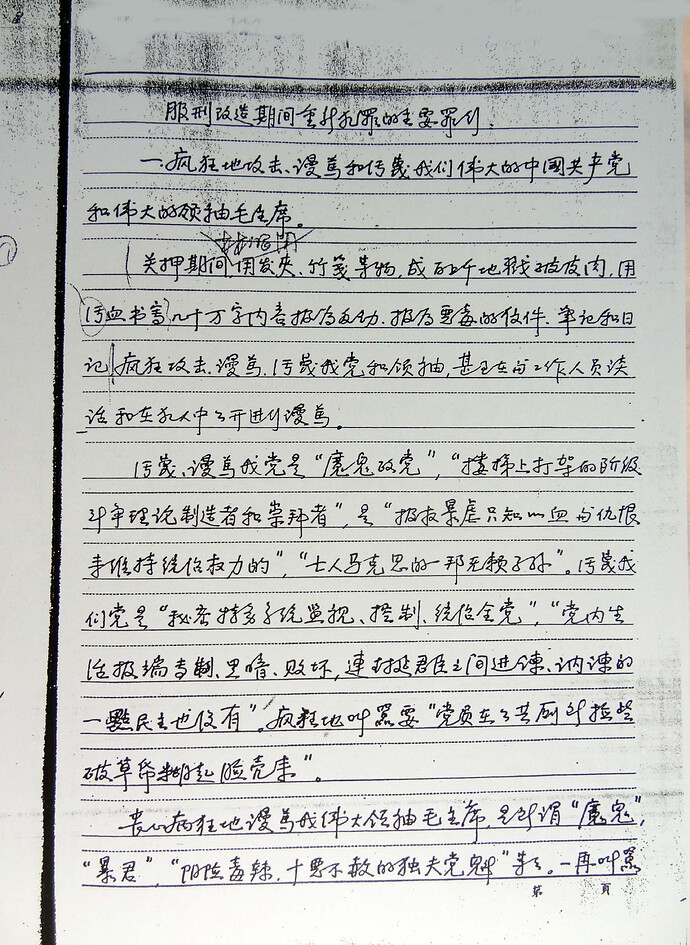 服刑改造期间重新犯罪的主要罪行:
一.疯狂地攻击、谩骂和污蔑我们伟大的中國共产党
和伟大的领袖毛主席。
关押期间,用发夹、竹签等物,成百上千地戳破皮肉,用
污血书写几十万字内容极为反动、极为恶毒的信件、笔记和日
记,疯狂攻击、谩骂、污蔑我党和领袖,甚至在与工作人员谈
话和在犯人中公开进行谩骂。
污蔑、谩骂我党是“魔鬼政党”,“楼梯上打架的阶级
斗争理论制造者和崇拜者”,是“极权暴虐只知以血与仇恨
来维持统治权力的”,“士人马克思的一邦无赖子孙”。污蔑我
们党是“秘密特务系统监视、控制、统治全党”,“党内生
活极端专制、黑暗、败坏,連封建君臣之间进諫、讷諫的
一點民主也没有”。疯狂地叫嚣要“党员在公共厕所拾些
破草帋糊起脸壳来”。
丧心病狂地谩骂我伟大领袖毛主席,是所谓“魔鬼”,
“暴君”,“阴险毒辣、十恶不赦的独夫党魁”等等。一再叫嚣
第 頁